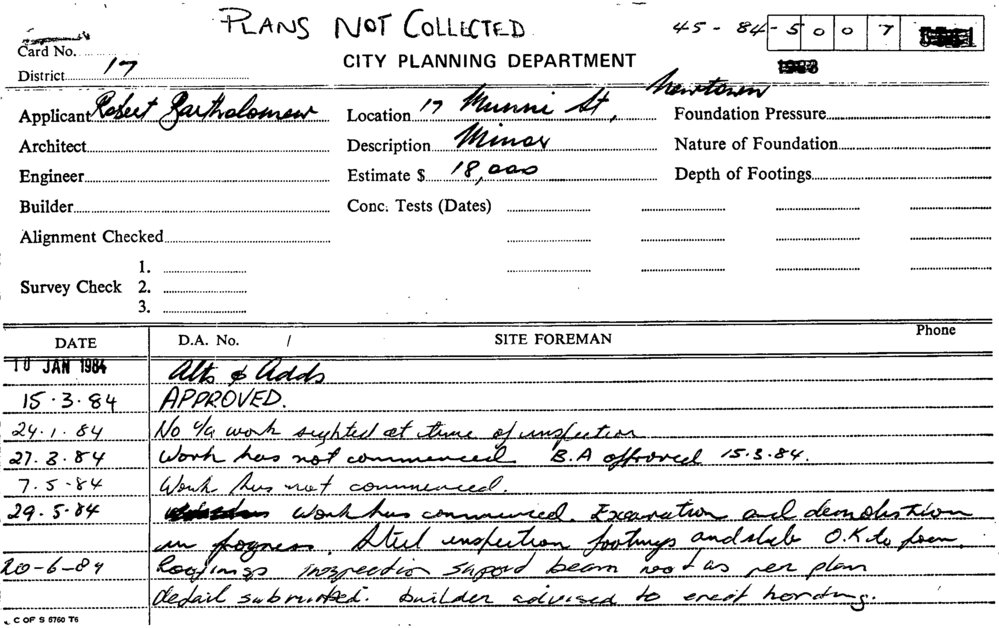 PLANS NOT COLLECTED
45-84-5007
Card No.
CITY PLANNING DEPARTMENT
District 17
Applicant Robert Bartholomew Location 17 Munni St, Newtown Foundation Pressure
Architect Description Minor Nature of Foundation
Engineer Estimate $ 18,000 Depth of Footings
Builder Conc. Tests (Dates)
Alignment Checked
1.
Survey Check 2.
3.
DATE D.A. No. / SITE FOREMAN Phone
10 JAN 1984 Alts & Adds
15.3.84 APPROVED.
24.1.84 No work sighted at time of inspection
27.3.84 Work has not commenced B.A approved 15.3.84.
7.5-84 Work has not commenced.
29.5.84 Work has commenced. Excavation and demolistion
in progress. Steel inspection footings and slab O.K to pour.
20-6-84 inspection beam not as per plan
detail submitted. builder advised to erect hording.
C OF S 5760 T6